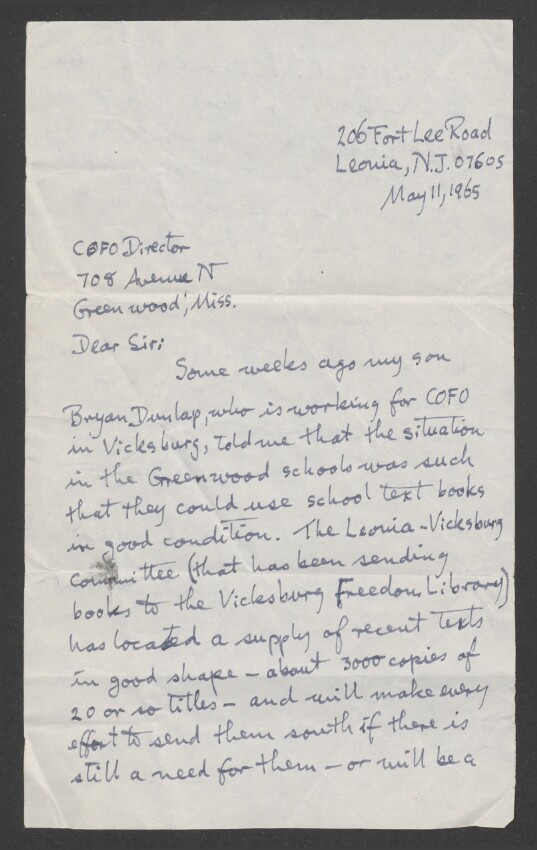 206 Fort Lee Road
Leonia, N.J. 07605
May 11, 1965
COFO Director
708 Avenue N
Greenwood, Miss.
Dear Sir:
Some weeks ago my son
Bryan Dunlap, who is working for COFO
in Vicksburg, told me that the situation
in the Greenwood schools was such
that they could use school text books
in good condition. The Leonia-Vicksburg
Committee (that has been sending
books to the Vicksburg Freedom Library)
has located a supply of recent texts
in good shape - about 3000 copies of
20 or so titles - and will make every
effort to send them south if there is
still a need for them - or will be a